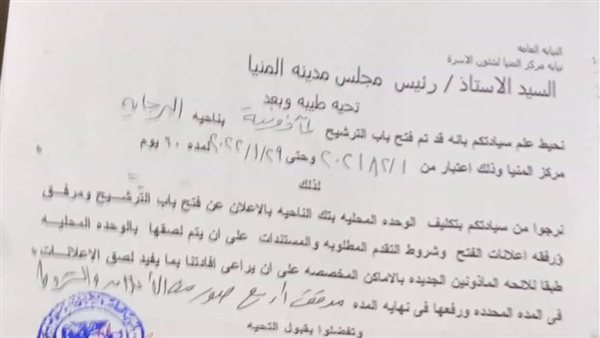 النيابه العامه
نيابه مركز المنيا لشئون الاسرة
السيد الاستاذ / رئيس مجلس مدينه المنيا
تحيه طيبه وبعد
نحيط علم سيادتكم بانه قد تم فتح باب الترشيح لمأذونية بناحيه البرجايه
مركز المنيا وذلك اعتبار من وحتى ٢٠٢٢/١/٢٩ لمده ٦٠ يوم
لذلك
نرجوا من سيادتكم بتكليف الوحده المحليه بتك الناحيه بالاعلان عن فتح باب الترشيح ومرفق
ورفقه اعلانات الفتح وشروط التقدم المطلوبه والمستندات على ان يتم لصقها بالوحده المحليه
طبقا للائحه الماذونين الجديده بالاماكن المخصصه على ان يراعى افادتنا بما يفيد لصق الاعلانات
فى المده المحدده ورفعها فى نهايه المده مرفق أربع صور من والشروط
وتفضلوا بقبول التحيه